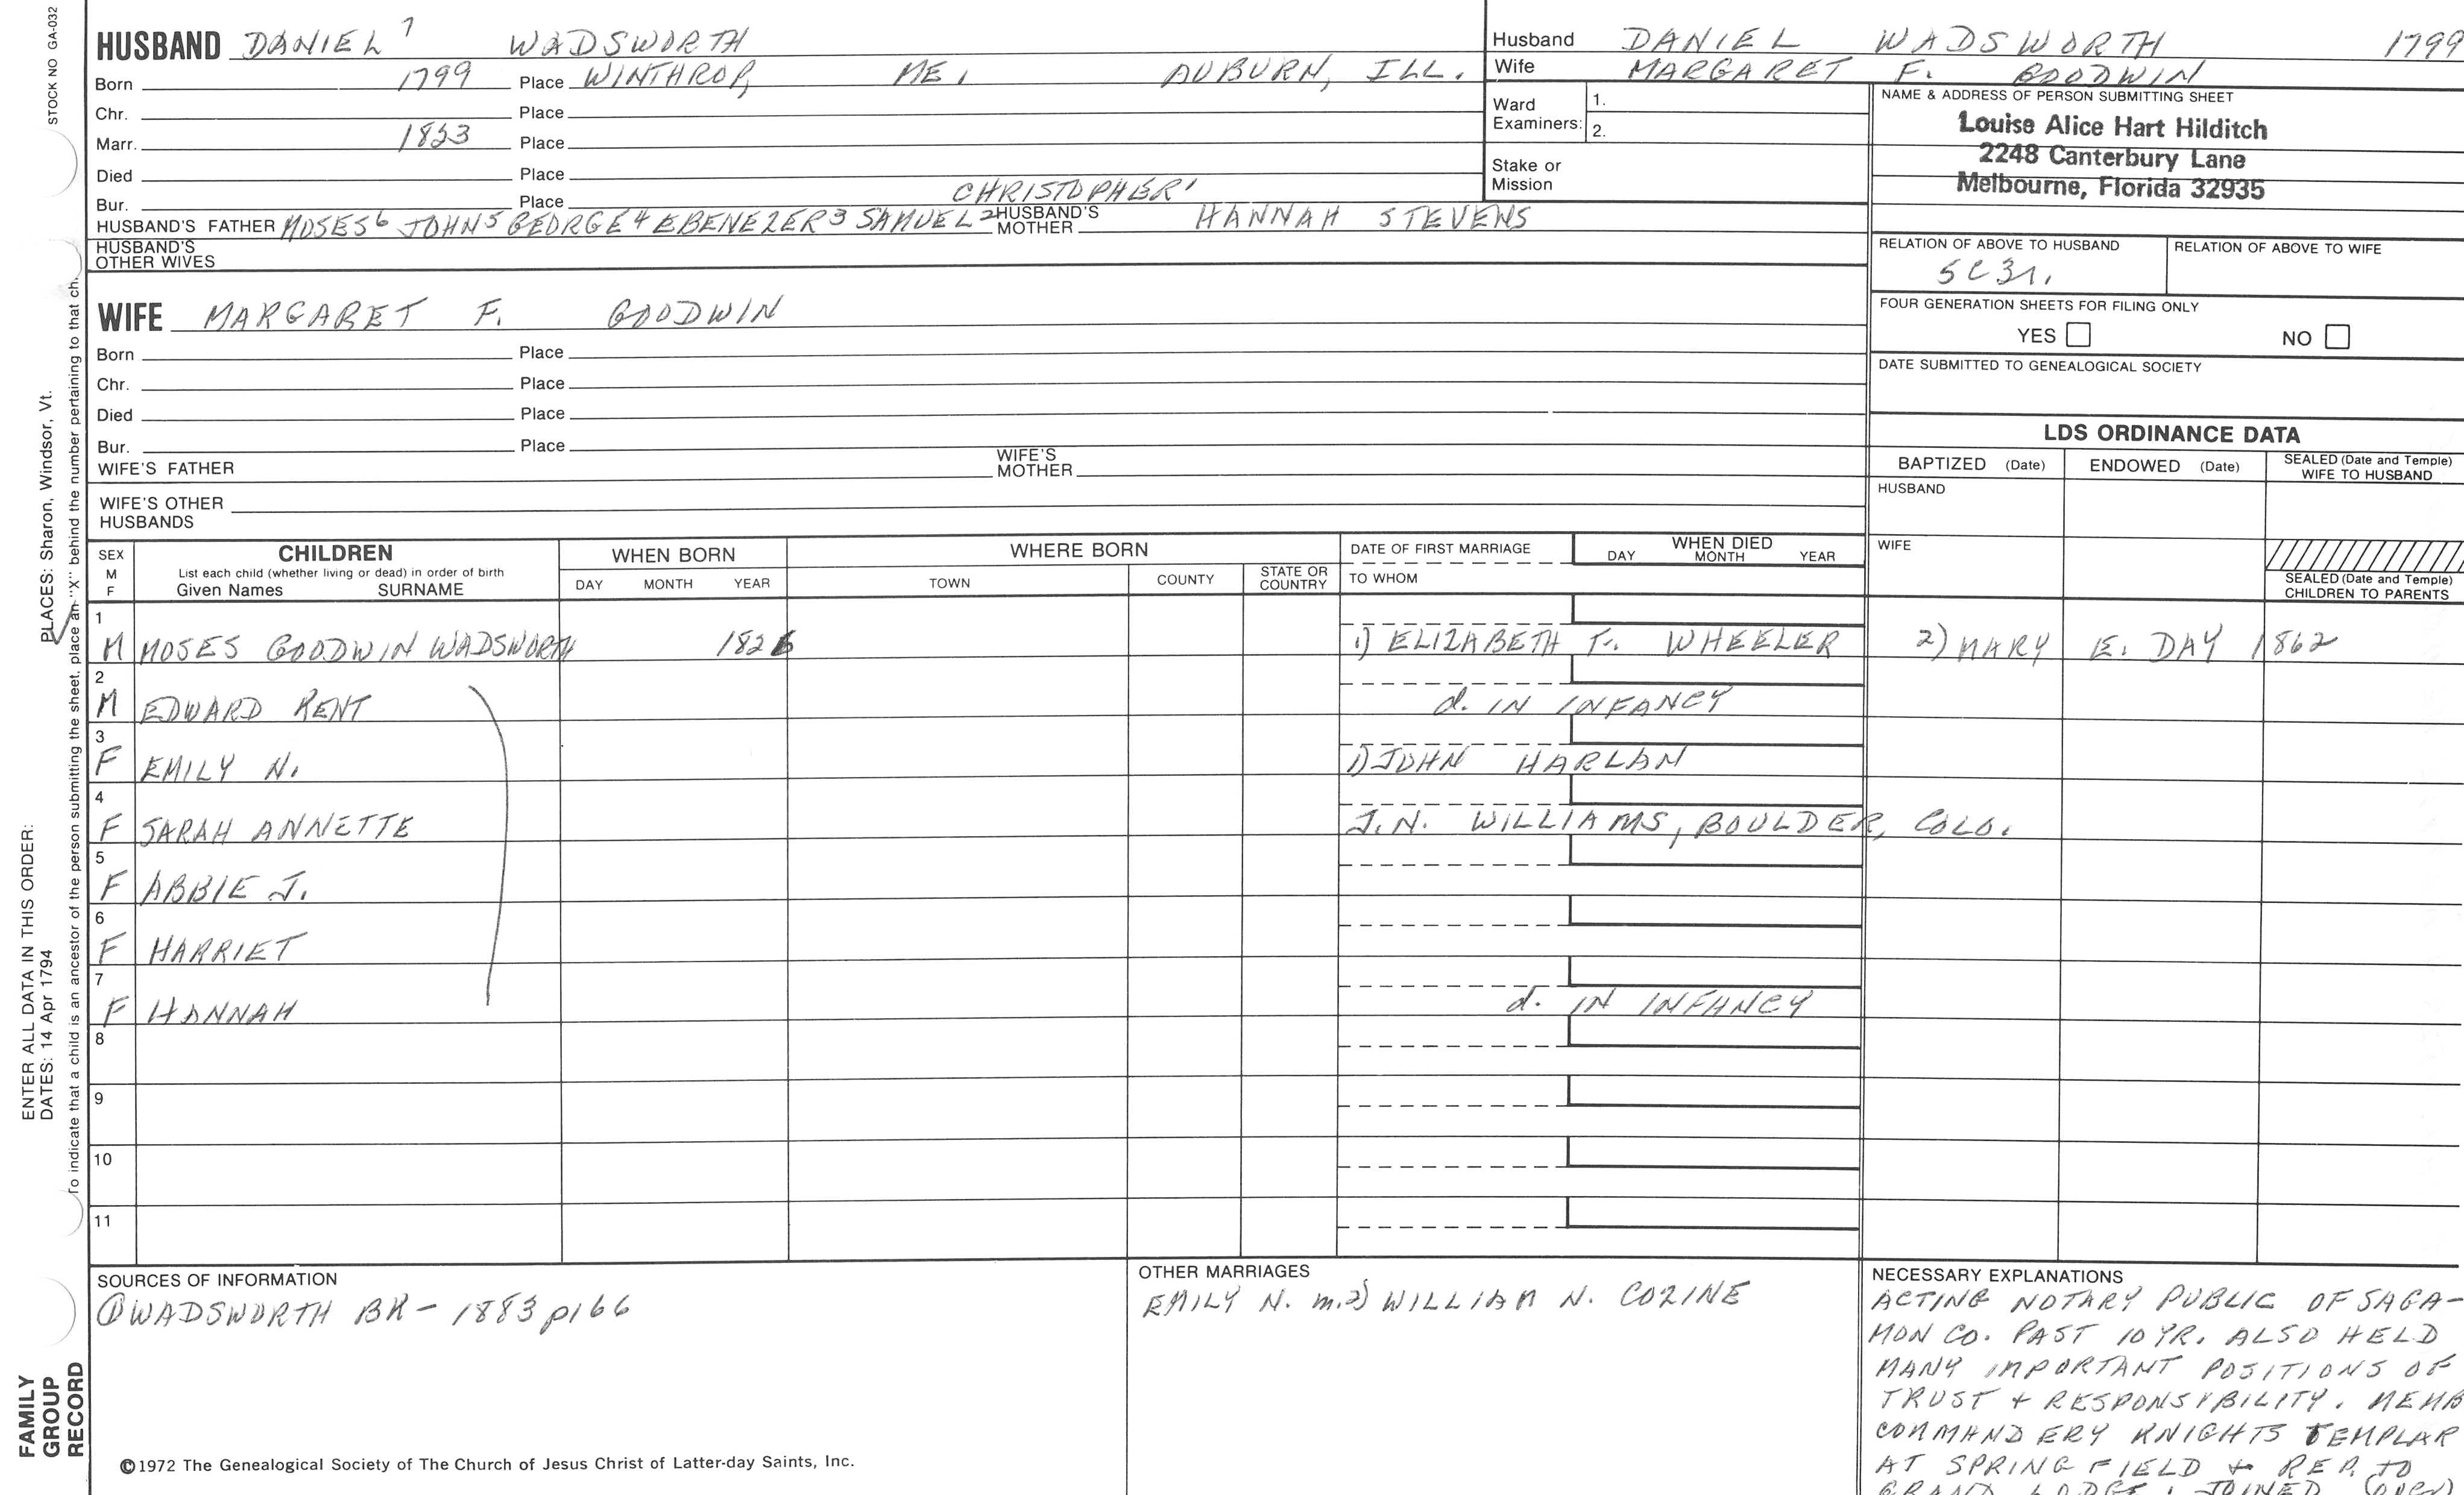 STOCK NO GA-032
HUSBAND DANIEL 7 WADSWORTH
Born 1799 Place WINTHROP, ME, AUBURN, ILL.
Chr. Place
Marr. 1853 Place
Died Place
Bur. Place CHRISTOPHER 1
HUSBAND'S FATHER MOSES 6 JOHN 5 GEORGE 4 EBENEZER 3 SAMUEL 2 HUSBAND'S MOTHER HANNAH STEVENS
HUSBAND'S OTHER WIVES
WIFE MARGARET F. GOODWIN
Born Place
Chr. Place
Died Place
Bur. Place
WIFE'S FATHER WIFE'S MOTHER
WIFE'S OTHER HUSBANDS
Husband DANIEL WADSWORTH 1799
Wife MARGARET F. GOODWIN
Ward Examiners: 1.
2.
Stake or Mission
NAME & ADDRESS OF PERSON SUBMITTING SHEET
Louise Alice Hart Hilditch
2248 Canterbury Lane
Melbourne, Florida 32935
RELATION OF ABOVE TO HUSBAND RELATION OF ABOVE TO WIFE
5C3r.
FOUR GENERATION SHEETS FOR FILING ONLY
YES NO
DATE SUBMITTED TO GENEALOGICAL SOCIETY
LDS ORDINANCE DATA
BAPTIZED (Date) ENDOWED (Date) SEALED (Date and Temple) WIFE TO HUSBAND
HUSBAND
WIFE
SEALED (Date and Temple) CHILDREN TO PARENTS
SEX M F CHILDREN WHEN BORN WHERE BORN DATE OF FIRST MARRIAGE WHEN DIED
List each child (whether living or dead) in order of birth
Given Names SURNAME DAY MONTH YEAR TOWN COUNTY STATE OR COUNTRY TO WHOM DAY MONTH YEAR
1 M MOSES GOODWIN WADSWORTH 1826 1) ELIZABETH F. WHEELER 2) MARY E. DAY 1862
2 M EDWARD KENT d. IN INFANCY
3 F EMILY N. 1) JOHN HARLAN
4 F SARAH ANNETTE J.N. WILLIAMS, BOULDER, COLO.
5 F ABBIE J.
6 F HARRIET
7 F HANNAH d. IN INFANCY
8
9
10
11
SOURCES OF INFORMATION
① WADSWORTH BK - 1883 p166
©1972 The Genealogical Society of The Church of Jesus Christ of Latter-day Saints, Inc.
OTHER MARRIAGES
EMILY N. m.2) WILLIAM N. COZINE
NECESSARY EXPLANATIONS
ACTING NOTARY PUBLIC OF SAGA-
MON CO. PAST 10 YR. ALSO HELD
MANY IMPORTANT POSITIONS OF
TRUST + RESPONSIBILITY. MEMB
COMMANDERY KNIGHTS TEMPLAR
AT SPRINGFIELD + REP. TO
GRAND LODGE; JOINED (OVER)
PLACES: Sharon, Windsor, Vt.
ENTER ALL DATA IN THIS ORDER:
DATES: 14 Apr 1794
To indicate that a child is an ancestor of the person submitting the sheet, place an "X" behind the number pertaining to that ch.
FAMILY
GROUP
RECORD